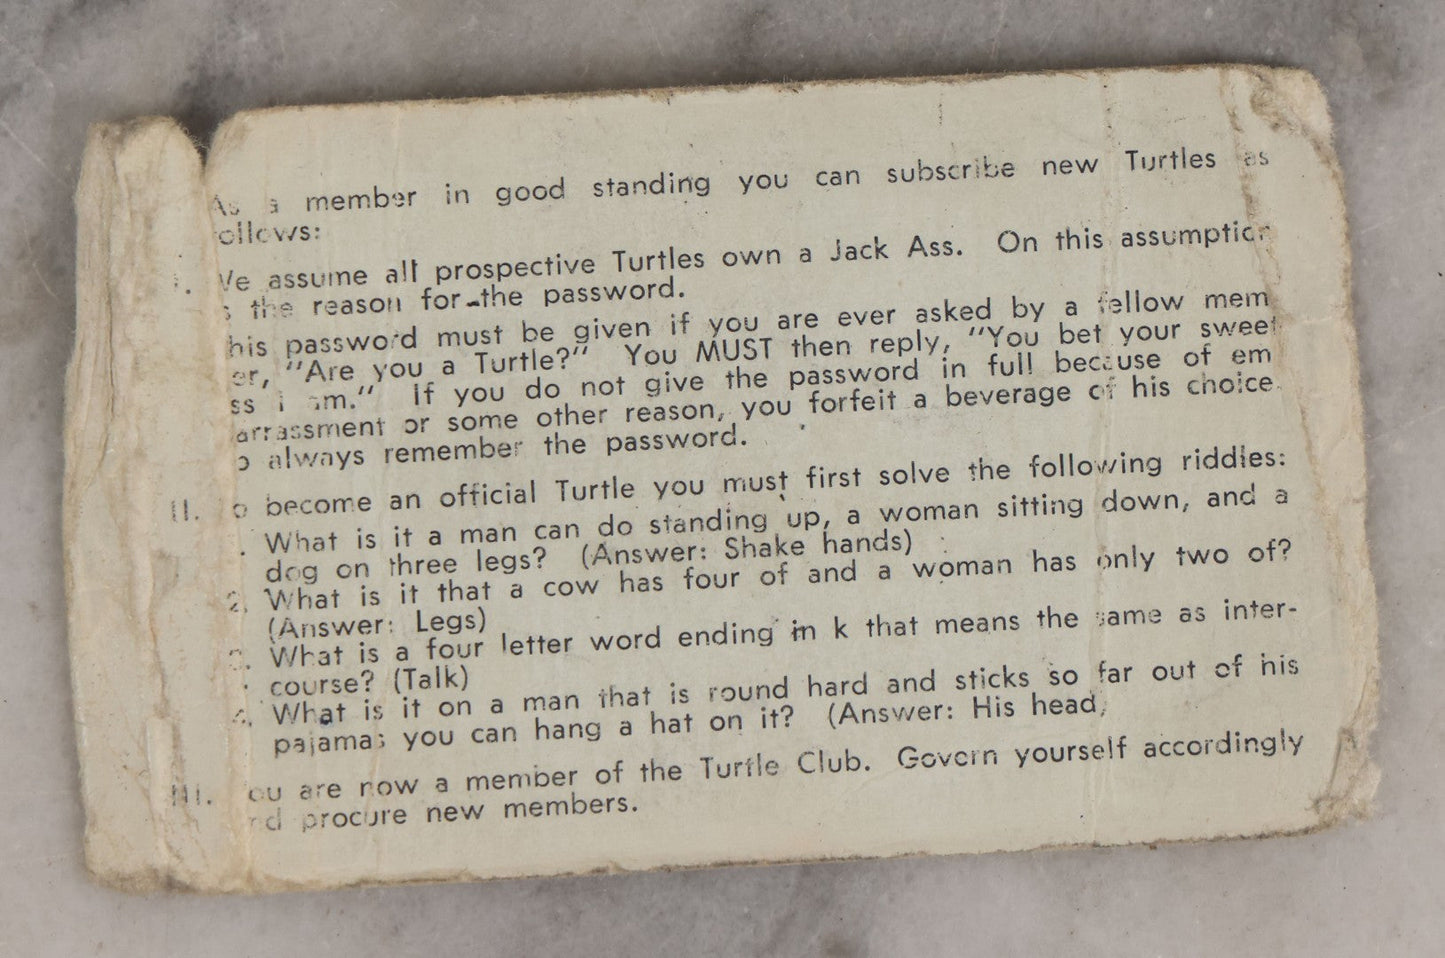 As a member in good standing you can subscribe new Turtles as
ollows:
We assume all prospective Turtles own a Jack Ass. On this assumption
s the reason for the password.
his password must be given if you are ever asked by a fellow mem
er, "Are you a Turtle?" You MUST then reply, "You bet your sweet
ss I am." If you do not give the password in full because of em
arrassment or some other reason, you forfeit a beverage of his choice
o always remember the password.
II. o become an official Turtle you must first solve the following riddles:
. What is it a man can do standing up, a woman sitting down, and a
dog on three legs? (Answer: Shake hands)
2. What is it that a cow has four of and a woman has only two of?
(Answer: Legs)
3. What is a four letter word ending in k that means the same as inter-
course? (Talk)
4. What is it on a man that is round hard and sticks so far out of his
pajamas you can hang a hat on it? (Answer: His head,
III. ou are now a member of the Turtle Club. Govern yourself accordingly
nd procure new members.